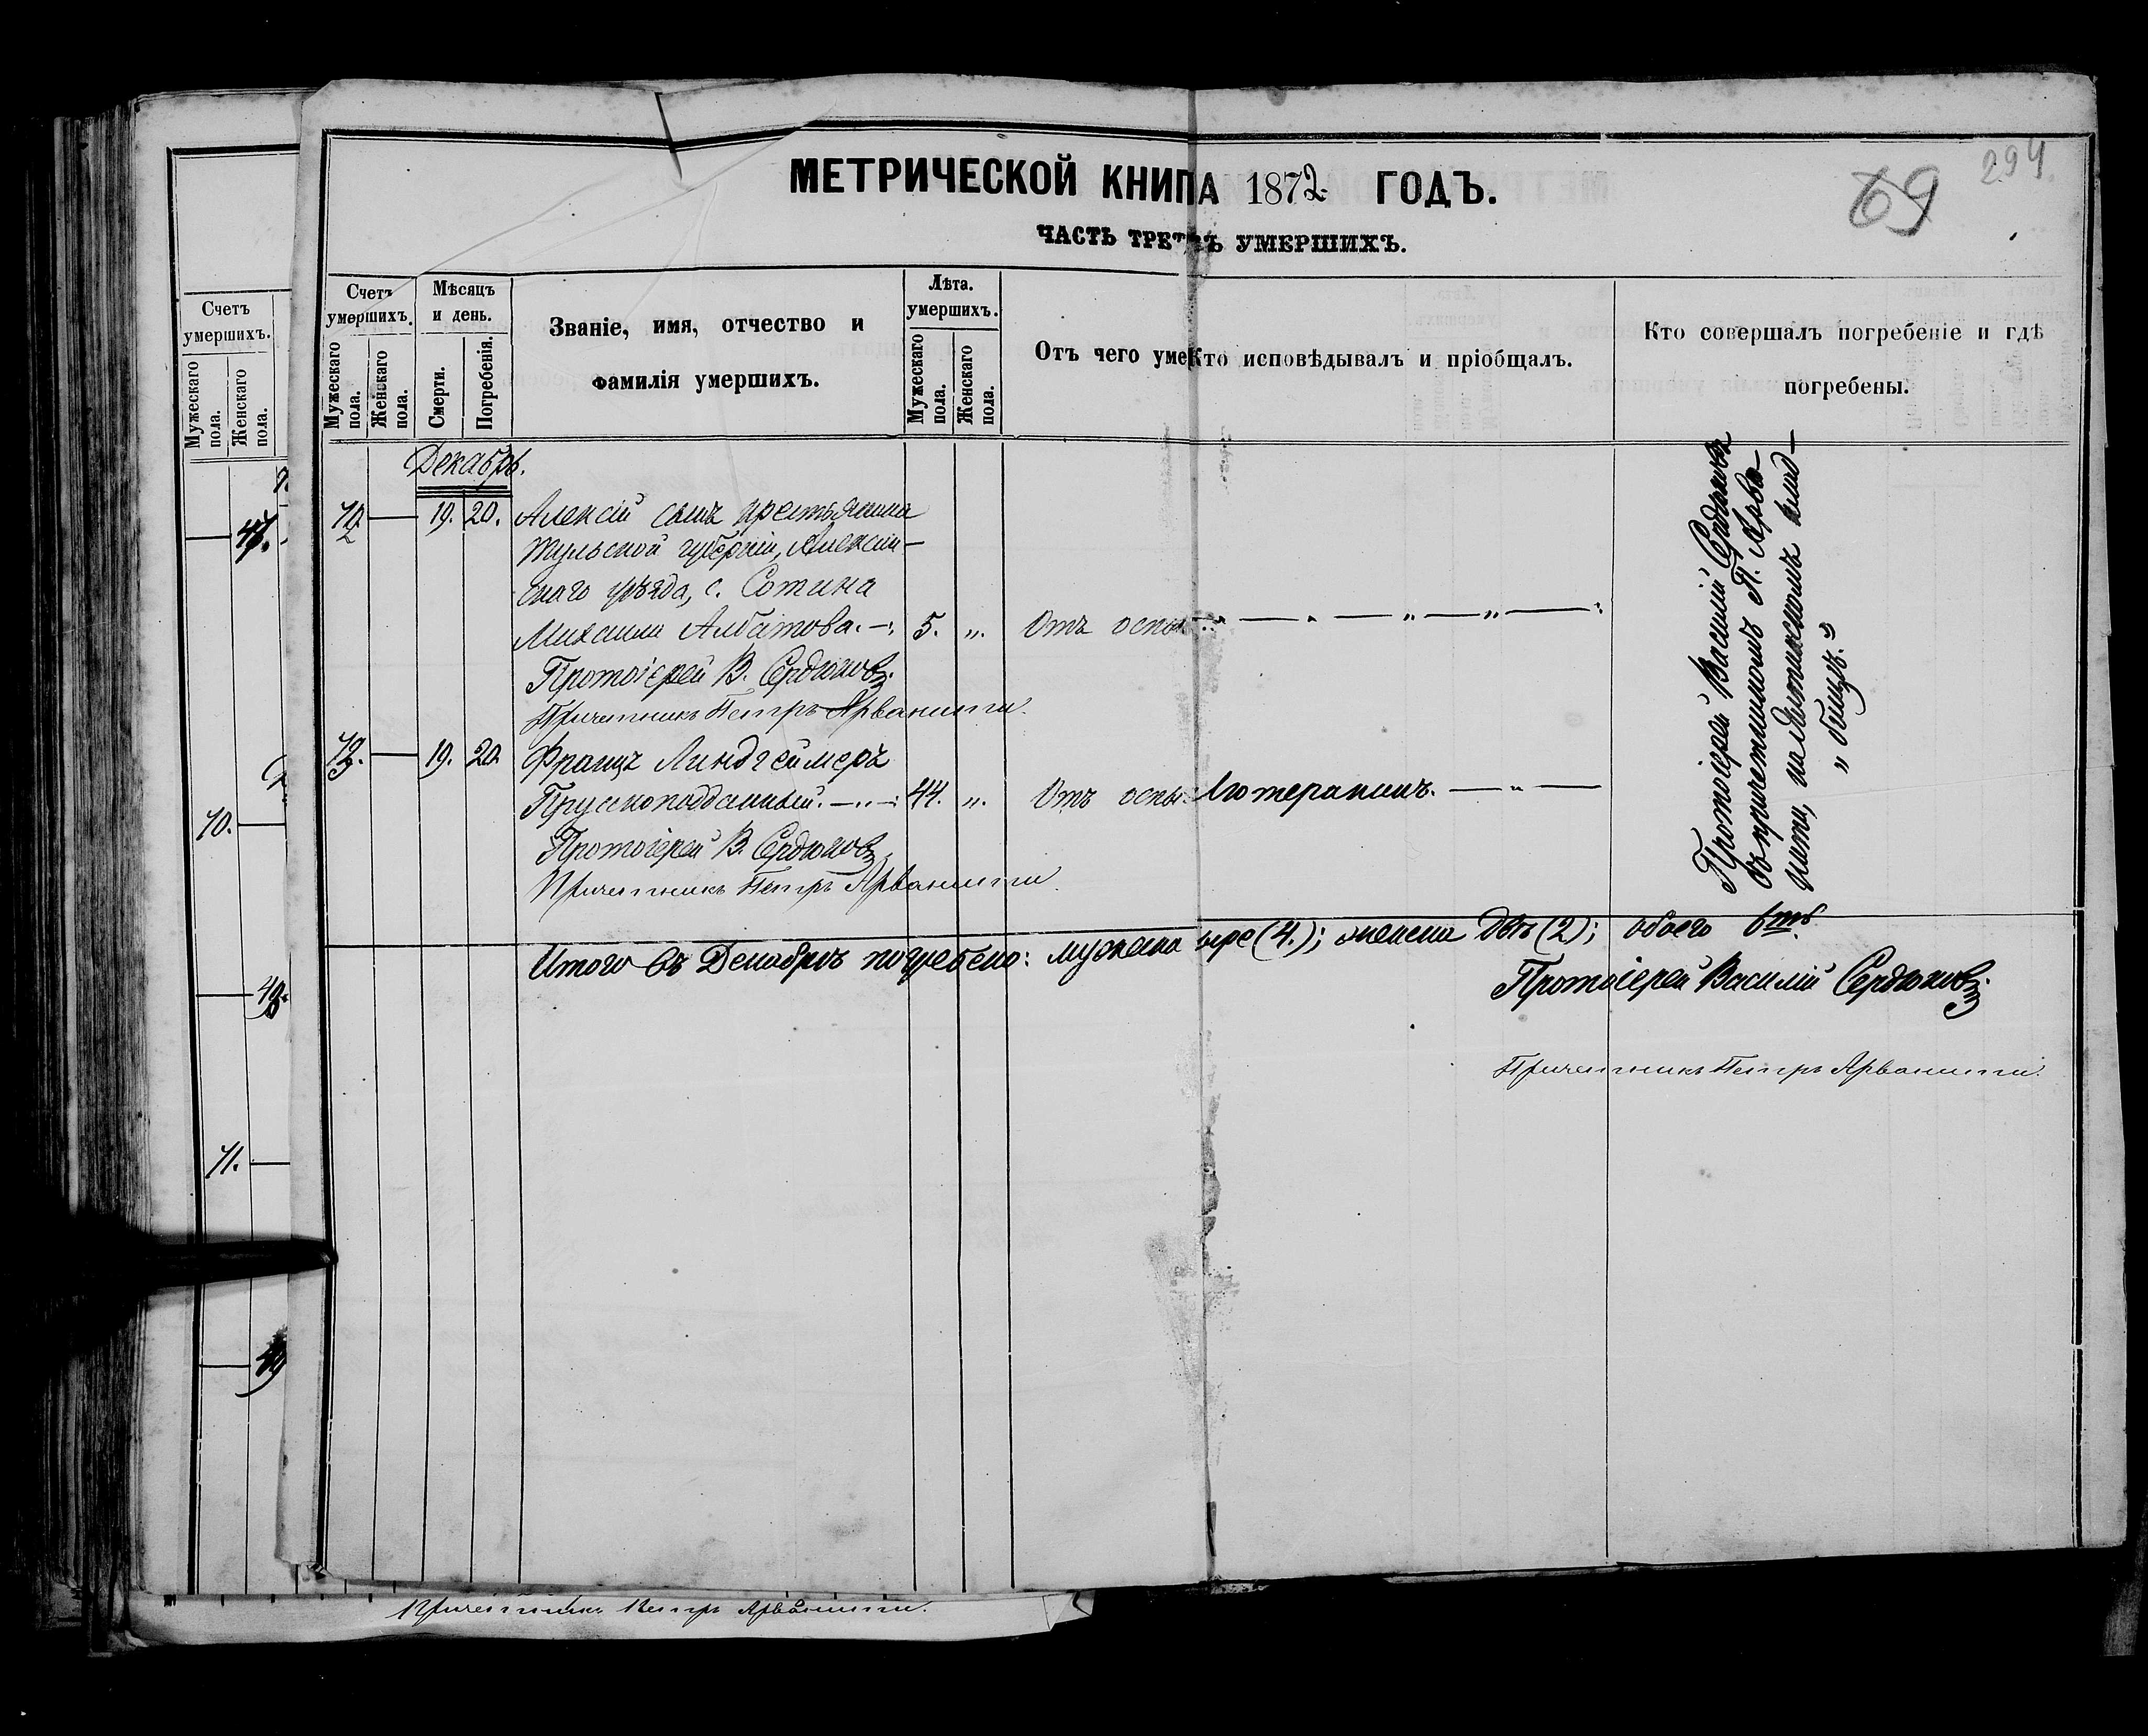 МЕТРИЧЕСКОЙ КНИГА 1872 ГОДЪ.
ЧАСТЬ ТРЕТЬ УМЕРШИХЪ.
69
294.
Счетъ умершихъ.
Мужескаго пола.
Женскаго пола.
47.
70.
48.
71.
49
Счетъ умершихъ.
Мужескаго пола.
Женскаго пола.
Мѣсяцъ и день.
Смерти.
Погребенія.
Званіе, имя, отчество и
фамилія умершихъ.
Лѣта.
умершихъ.
Мужескаго пола.
Женскаго пола.
Отъ чего уме
Кто исповѣдывалъ и пріобщалъ.
Кто совершалъ погребеніе и гдѣ
погребены.
Декабрь.
72 — 19. 20. Алексій сынъ крестьянина
Тульской губерніи, Алексин-
скаго уѣзда, с. Сотина
Михаила Албатова. — 5. „ Отъ оспы
Протоіерей В. Сердюковъ.
Причетникъ Петръ Арванити.
73. — 19. 20. Францъ Линдгеймеръ
Прусскоподданный. — 44. „ Отъ оспы. Лютеранинъ. — „ —
Протоіерей В. Сердюковъ
Причетникъ Петръ Арванити
Протоіерей Василій Сердюковъ
съ причетникомъ П. Арва-
нити, на
кладбищѣ.
Итого въ Декабрѣ погребено: мужеска чыре (4.); женска двѣ (2); обоего 6ть
Протоіерей Василій Сердюковъ
Причетникъ Петръ Арванити.
Причетникъ Петръ Арванити.